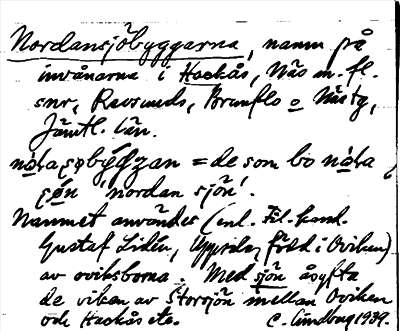 Nordansjöbyggarna, namn på
invånarna i Hackås, Näs m. fl.
snr, Ravsunds, Brunflo o Näs tg,
Jämtl. län.
= de som bo
'nordan sjön'.
Namnet användes (enl. Fil. kand.
Gustaf Lidén, Uppsala, född i Oviken)
av oviksborna. Med sjön åsyfta
de viken av Storsjön mellan Oviken
och Hackås etc. C. Lindberg 1939.